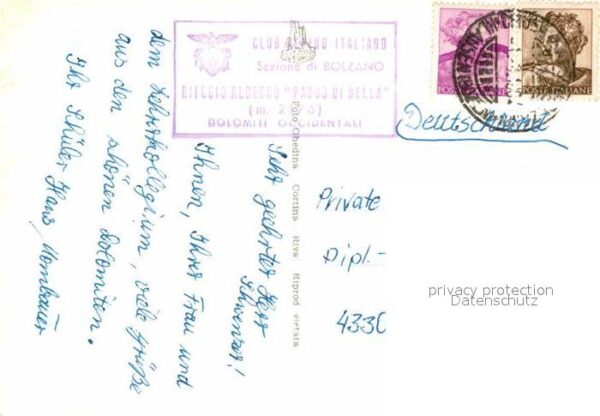 CLUB ALPINO ITALIANO
Sezione di BOLZANO
RIFUGIO ALBERGO "PASSO DI SELLA"
DOLOMITI OCCIDENTALI
POSTE ITALIANE
POSTE ITALIANE
Deutschland
Sehr geehrter Herr
Ihnen, Ihrer Frau und
dem Lehrerkollegium, viele Grüße
aus den schönen Dolomiten.
Ihr Schüler Hans Mombauer
Foto Ghedina Cortina Riva Riprod vietata
Private
Dipl.-
4330
privacy protection
Datenschutz